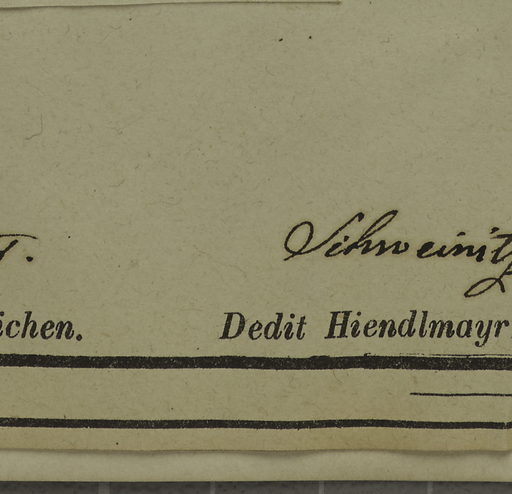 Schweinitz
ichen. Dedit Hiendlmayr